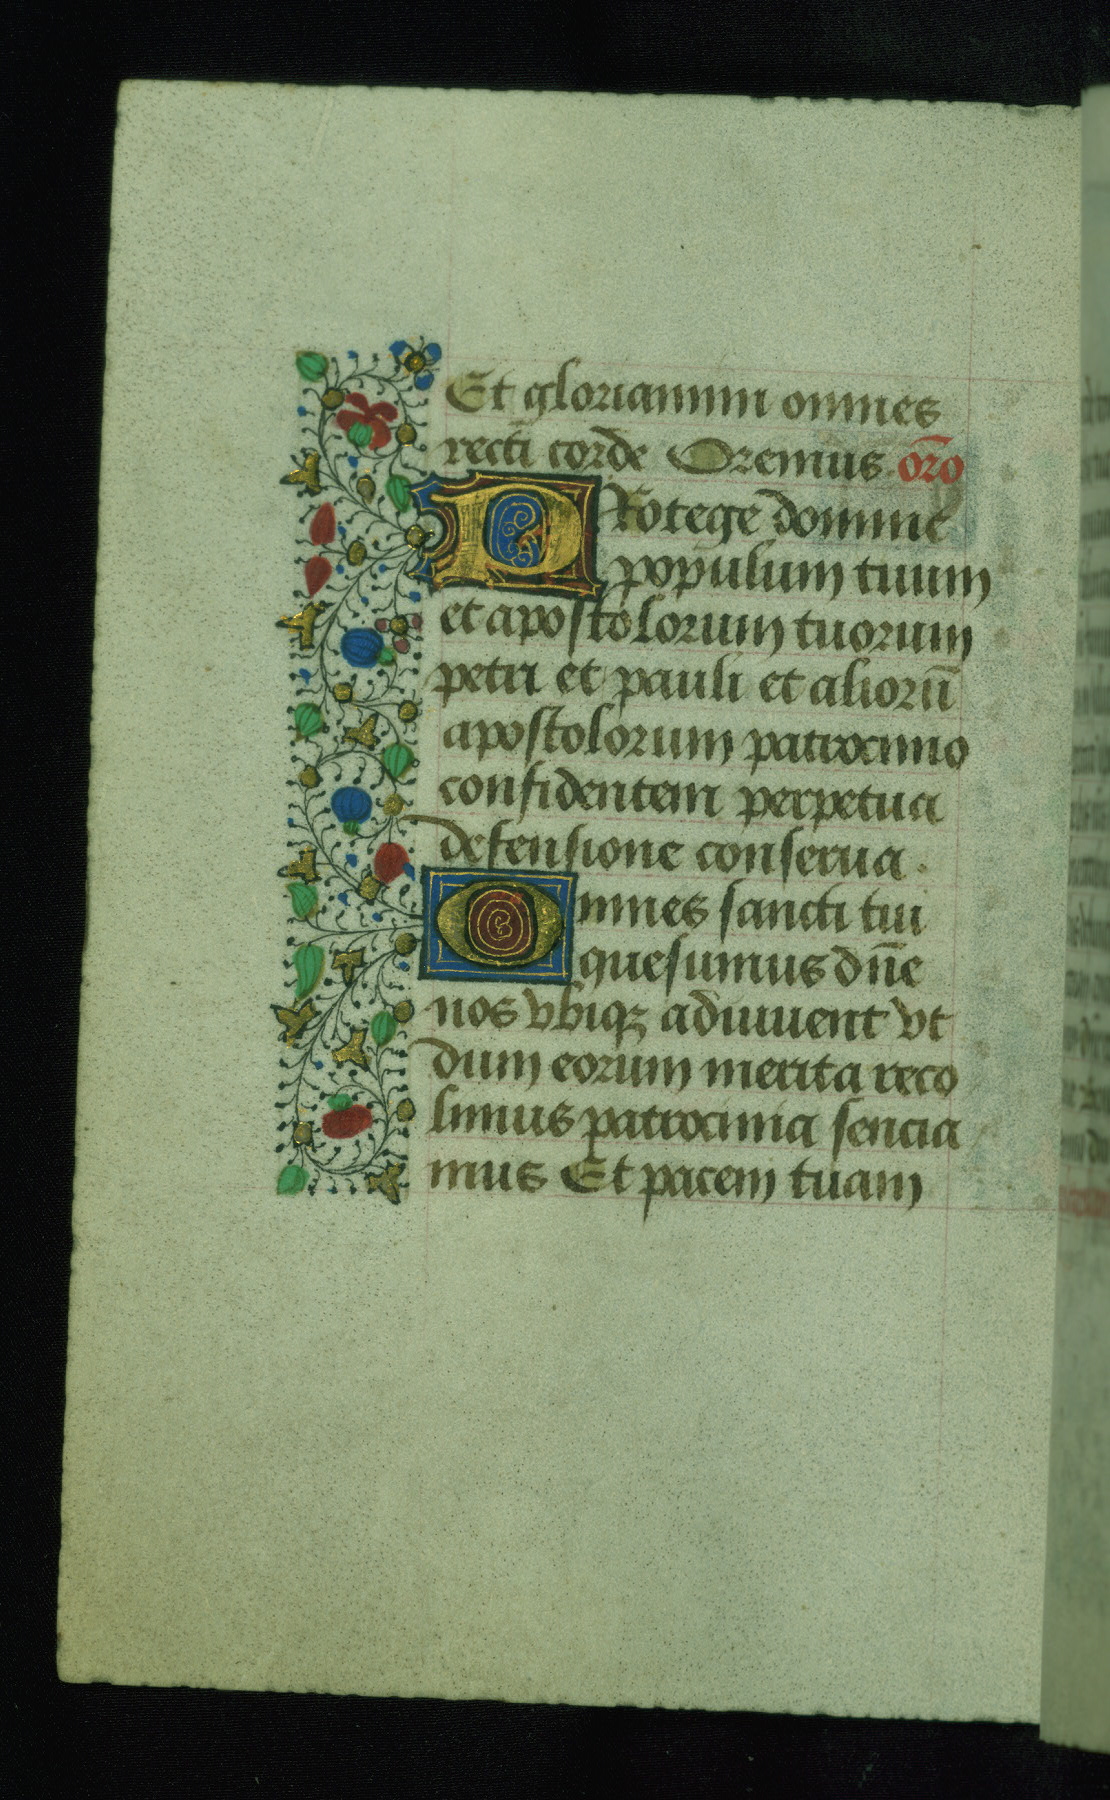 Et gloriamini omnes
recti corde Oremus oro̅
PRotege domine
populum tuum
et apostolorum tuorum
petri et pauli et aliorū
apostolorum patrocinio
confidentem perpetua
defensione conserua .
Omnes sancti tui
quesumus dn̄e
nos vbiqꝫ adiuuent vt
dum eorum merita reco
limus patrocinia sencia
mus Et pacem tuam